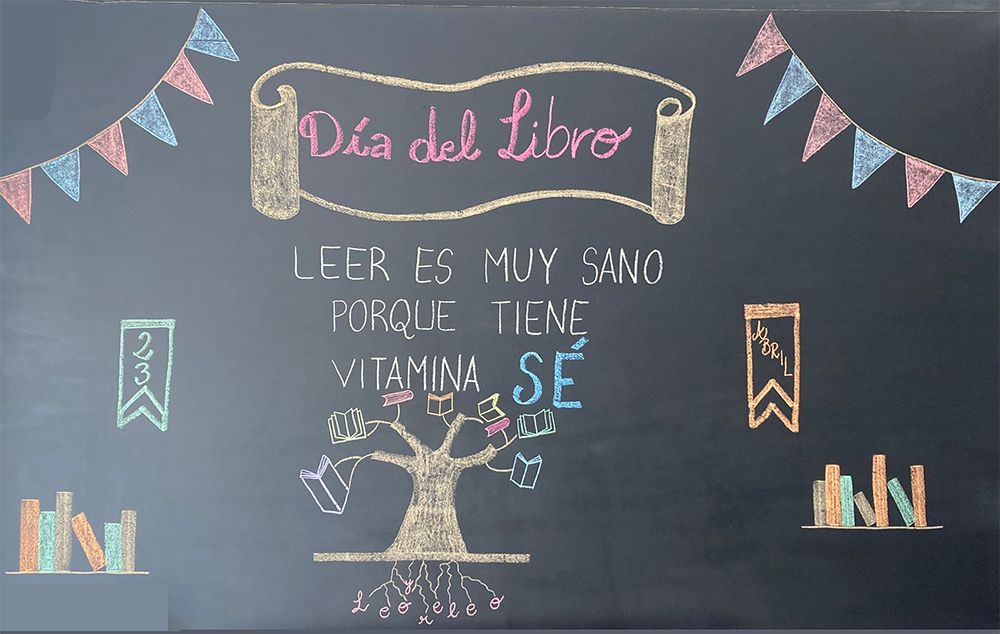 Día del Libro
LEER ES MUY SANO
PORQUE TIENE
VITAMINA SÉ
23
ABRIL
Leo y releo